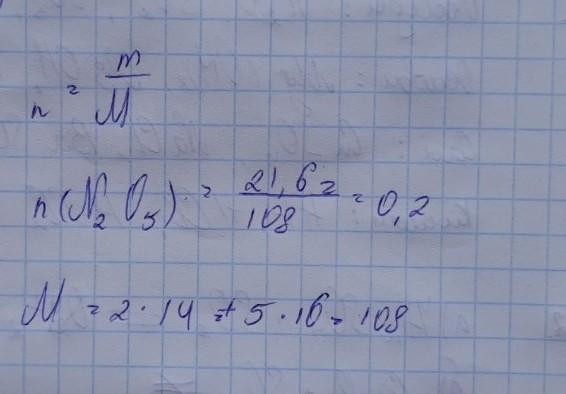 n = m/M
n(N₂O₅) = 21,6 г/108 = 0,2
M = 2 · 14 + 5 · 16 = 108